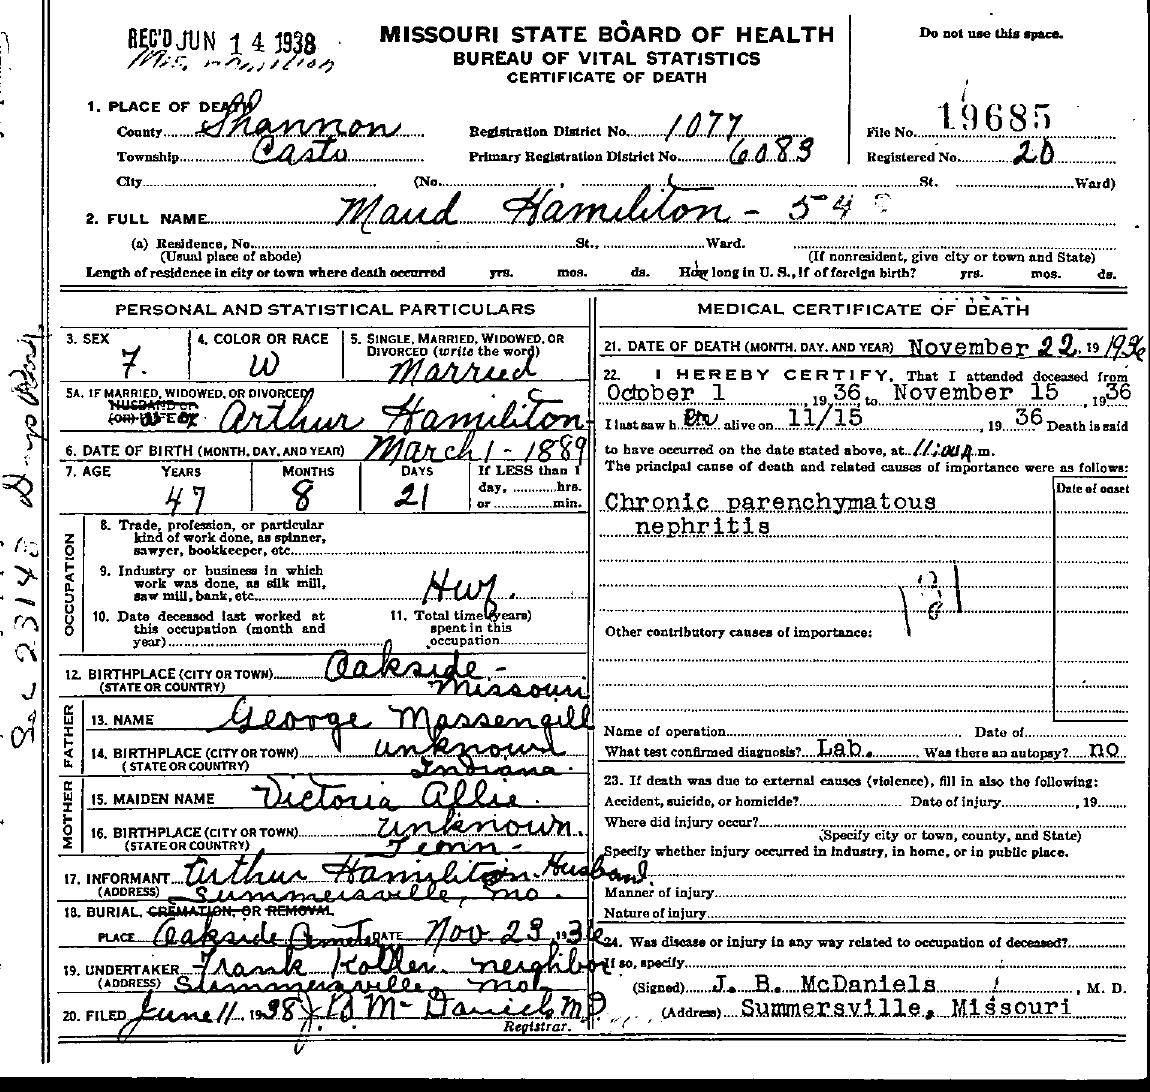 REC'D JUN 14 1938
MISSOURI STATE BOARD OF HEALTH
BUREAU OF VITAL STATISTICS
CERTIFICATE OF DEATH
Do not use this space.
1. PLACE OF DEATH
County Shannon Registration District No. 1077 File No. 19685
Township Casto Primary Registration District No. 6083 Registered No. 20
City (No. St. Ward)
2. FULL NAME Maud Hamiliton - 54
(a) Residence, No. St., Ward.
(Usual place of abode) (If nonresident, give city or town and State)
Length of residence in city or town where death occurred yrs. mos. ds. How long in U. S., if of foreign birth? yrs. mos. ds.
PERSONAL AND STATISTICAL PARTICULARS
3. SEX F. 4. COLOR OR RACE W 5. SINGLE, MARRIED, WIDOWED, OR DIVORCED (write the word) Married
5A. IF MARRIED, WIDOWED, OR DIVORCED
HUSBAND OF
(OR) WIFE OF Arthur Hamiliton
6. DATE OF BIRTH (MONTH, DAY, AND YEAR) March 1 - 1889
7. AGE YEARS 47 MONTHS 8 DAYS 21 If LESS than 1 day, hrs. or min.
OCCUPATION
8. Trade, profession, or particular
kind of work done, as spinner,
sawyer, bookkeeper, etc.
9. Industry or business in which
work was done, as silk mill,
saw mill, bank, etc. Hwf.
10. Date deceased last worked at
this occupation (month and
year)
11. Total time (years)
spent in this
occupation
12. BIRTHPLACE (CITY OR TOWN) Oakside -
(STATE OR COUNTRY) Missouri
FATHER
13. NAME George Massengill
14. BIRTHPLACE (CITY OR TOWN) unknown
(STATE OR COUNTRY) Indiana.
MOTHER
15. MAIDEN NAME Victoria Allie.
16. BIRTHPLACE (CITY OR TOWN) unknown.
(STATE OR COUNTRY) Tenn -
17. INFORMANT Arthur Hamiliton. Husband.
(ADDRESS) Summersville, Mo.
18. BURIAL, CREMATION, OR REMOVAL
PLACE Oakside DATE Nov 23, 1936
19. UNDERTAKER Frank neighbor
(ADDRESS) Summersville, Mo.
20. FILED June 11, 1938 J. B. McDaniels M.D.
Registrar.
MEDICAL CERTIFICATE OF DEATH
21. DATE OF DEATH (MONTH, DAY, AND YEAR) November 22, 19 1936
22. I HEREBY CERTIFY, That I attended deceased from
October 1, 1936 to November 15, 1936
I last saw h er alive on 11/15, 19 36 Death is said
to have occurred on the date stated above, at 11:00 A.m.
The principal cause of death and related causes of importance were as follows:
Date of onset
Chronic parenchymatous
nephritis
Other contributory causes of importance:
Name of operation Date of
What test confirmed diagnosis? Lab. Was there an autopsy? no
23. If death was due to external causes (violence), fill in also the following:
Accident, suicide, or homicide? Date of injury, 19
Where did injury occur?
(Specify city or town, county, and State)
Specify whether injury occurred in industry, in home, or in public place.
Manner of injury
Nature of injury
24. Was disease or injury in any way related to occupation of deceased?
If so, specify
(Signed) J. B. McDaniels, M. D.
(Address) Summersville, Missouri